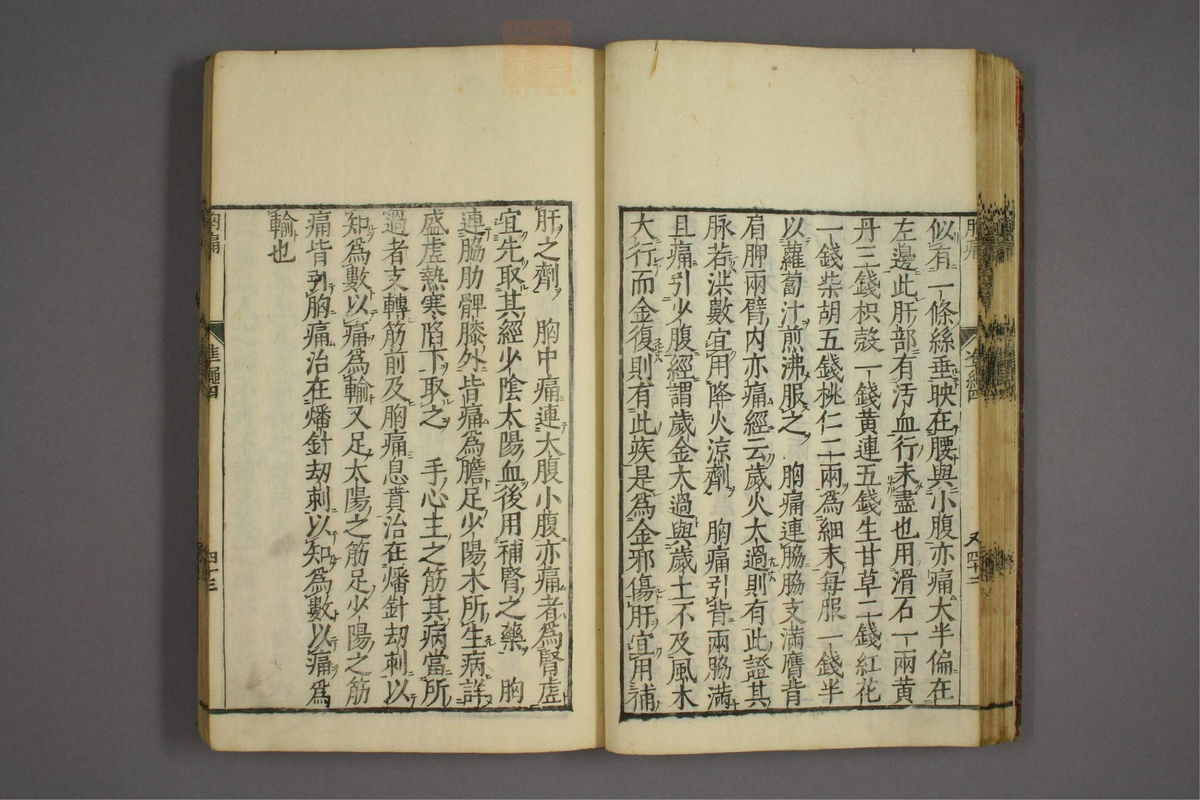 似有一條絲垂映在腰與小腹亦痛大半偏在
左邊此肝部有汚血行未盡也用滑石一兩黃
丹三錢枳殼一錢黃連五錢生甘草二錢紅花
一錢柴胡五錢桃仁二十兩爲細末每服一錢半
以蘿蔔汁煎沸服之 胸痛連脇脇支滿膺背
肩胛兩臂內亦痛經云歲火太過則有此證其
脉若洪數宜用降火涼劑 胸痛引背兩脇滿
且痛引少腹經謂歲金太過與歲土不及風木
大行而金復則有此疾是爲金邪傷肝宜用補
肝之劑 胸中痛連大腹小腹亦痛者爲腎虛
宜先取其經少陰太陽血後用補腎之藥 胸
連脇肋髀膝外皆痛爲膽足少陽木所生病詳
盛虛熱寒陷下取之 手心主之筋其病當所
過者支轉筋前及胸痛息賁治在燔針刼刺以
知爲數以痛爲輸又足太陽之筋足少陽之筋
痛皆引胸痛治在燔針刼刺以知爲數以痛爲
輸也
胸痛 準繩四 四十三